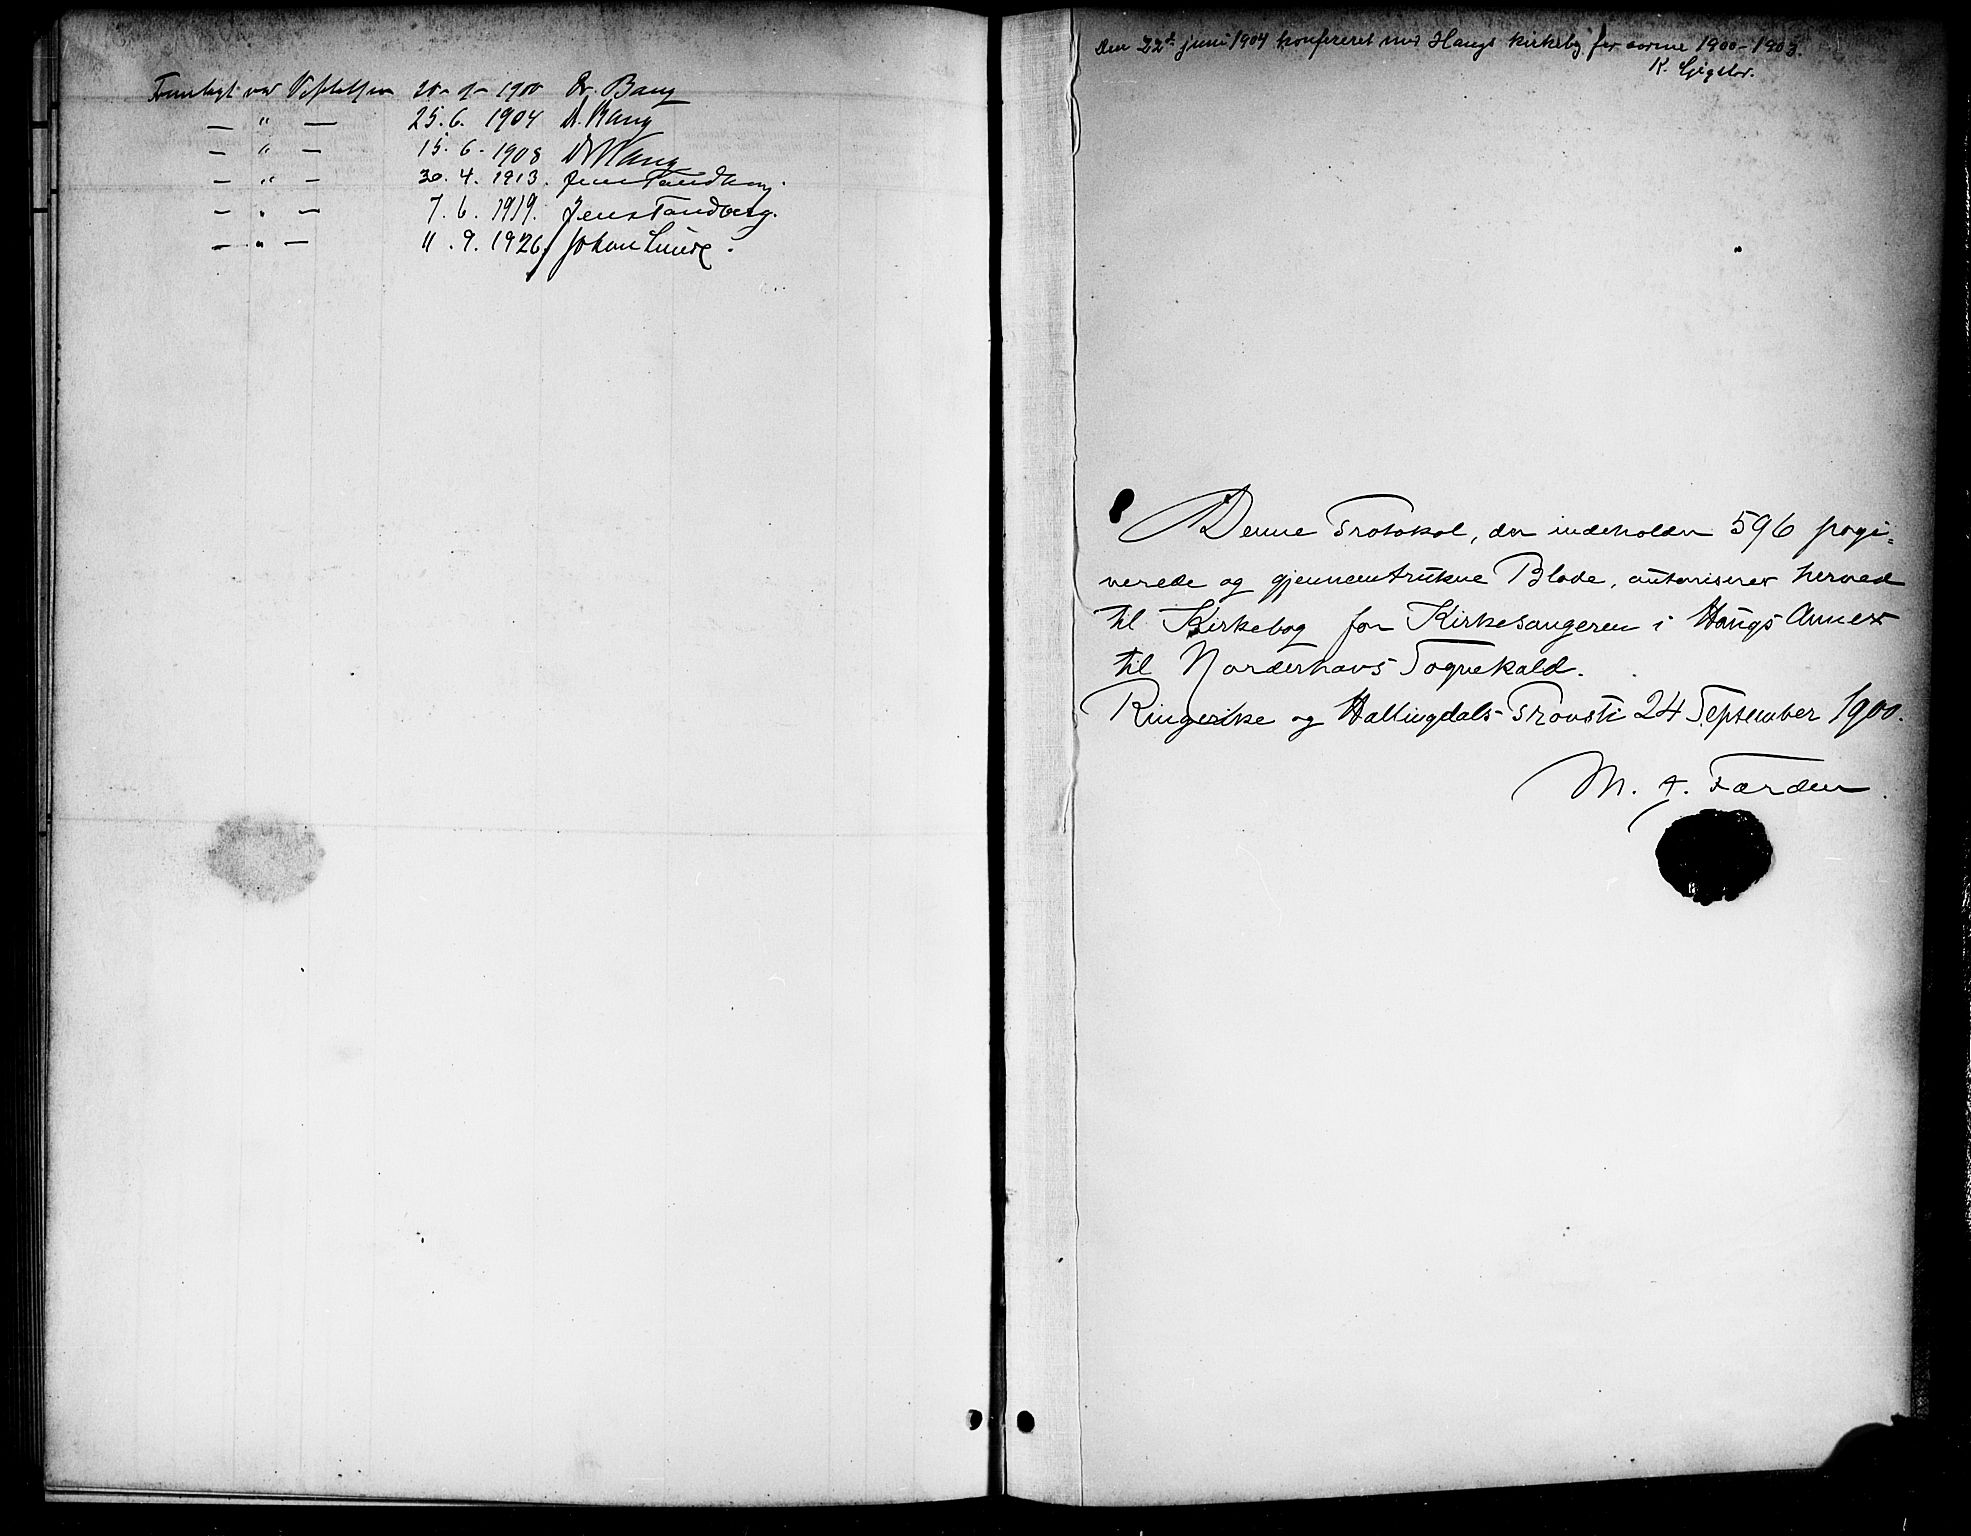 Fremlagt ved Visitatsen 1900 Dr. Bang
— " — 25. 6. 1904 A. Bang
— " — 15. 6. 1908 Bang
— " — 30. 4. 1913. Jens Tandberg.
— " — 7. 6. 1919. Jens Tandberg.
— " — 11. 9. 1926 Johan Lunde.
Den 22de juni 1904 konfereret med Haugs kirkebog for aarene 1900-1903.
K.
Denne Protokol, der indeholder 596 pagi=
nerede og gjennemtrukne Blade, autoriseres herved
til Kirkebog for Kirkesangeren i Haugs Annex
til Norderhovs Sognekald.
Ringerike og Hallingdals Provsti 24 September 1900.
M. A. Færden.